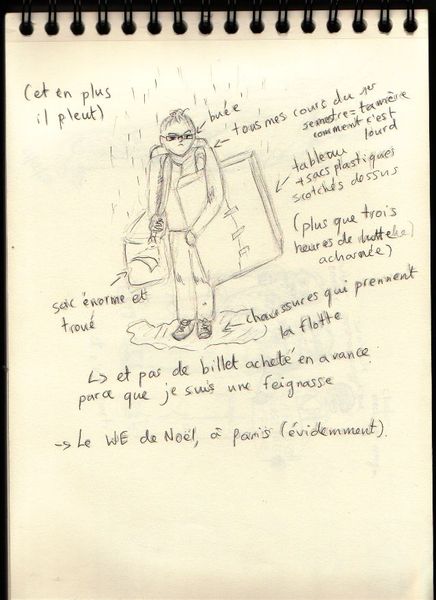 (et en plus
il pleut)
buée
tous mes cours du 1er
semestre = ta mère
comment c'est
lourd
tableau
+ sacs plastiques
scotchés dessus
(plus que trois
heures de lutte
acharnée)
sac énorme et
troué
chaussures qui prennent
la flotte
↳ et pas de billet acheté en avance
parce que je suis une feignasse
-> Le WE de Noël, à paris (évidemment).